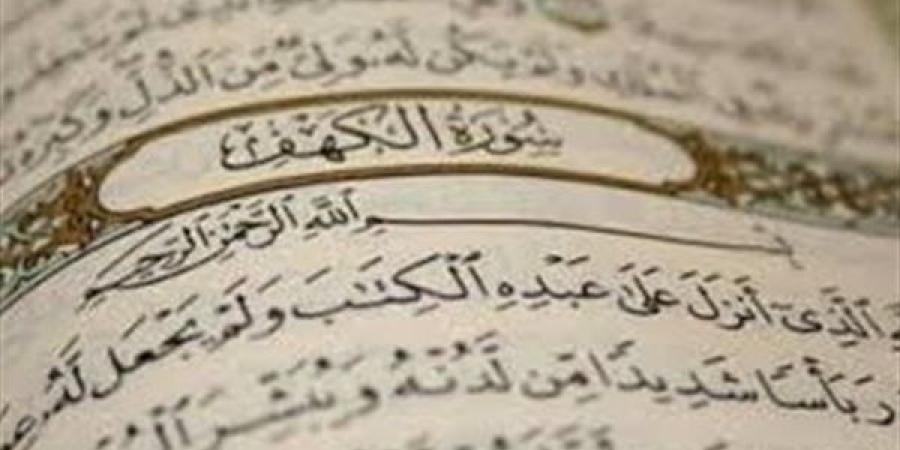 وَلَمْ يَكُن لَّهُۥ وَلِىٌّ مِّنَ ٱلذُّلِّ وَكَبِّرْهُ
سُورَةُ الكَهْفِ
بِسْمِ ٱللَّهِ ٱلرَّحْمَٰنِ ٱلرَّحِيمِ
ٱلَّذِىٓ أَنزَلَ عَلَىٰ عَبْدِهِ ٱلْكِتَٰبَ وَلَمْ يَجْعَل لَّهُۥ
بَأْسًا شَدِيدًا مِّن لَّدُنْهُ وَيُبَشِّرَ